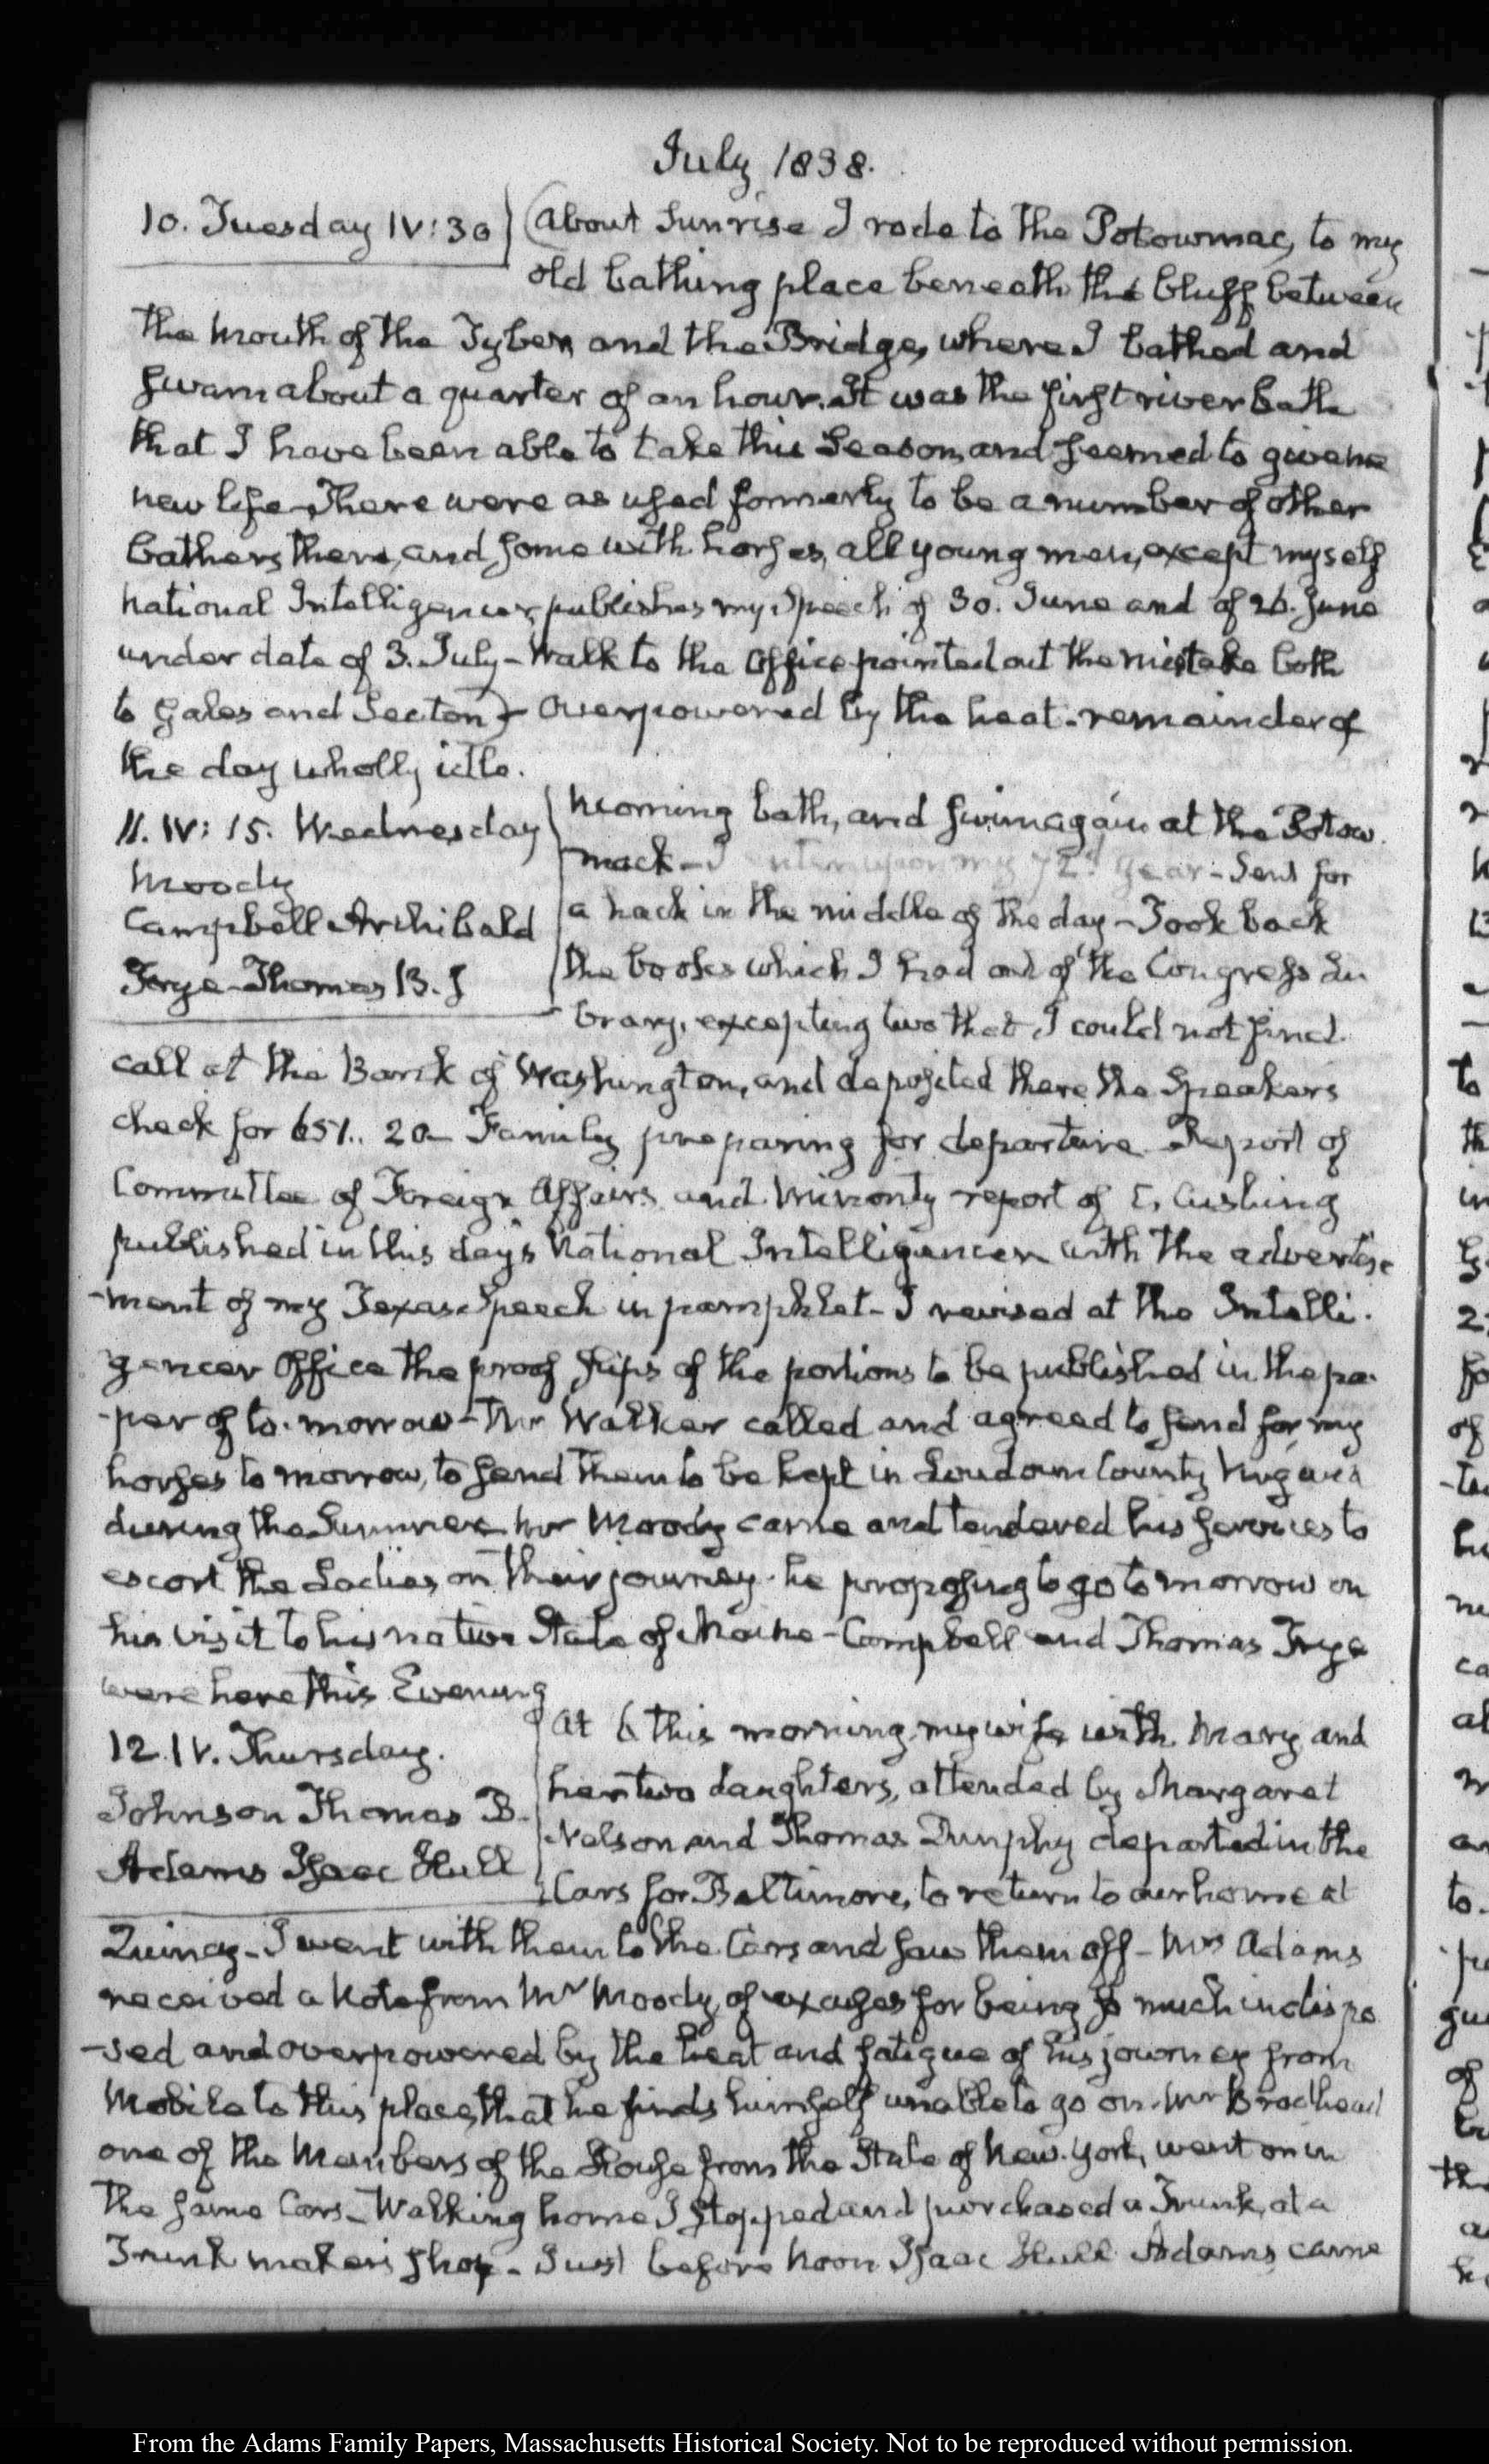 July 1838.
10. Tuesday IV:30 (About Sunrise I rode to the Potowmac, to my
old bathing place beneath the bluff between
the mouth of the Tyber, and the Bridge, where I bathed and
swam about a quarter of an hour. It was the first river bath
that I have been able to take this Season, and seemed to give me
new life—There were as used formerly to be a number of other
bathers there, and some with horses, all young men, except myself
National Intelligencer, publishes my Speech of 30. June and of 26. June
under date of 3. July—Walk to the Office pointed out the mistake both
to Gales and Seaton)—Overpowered by the heat-remainder of
the day wholly idle.
11. IV: 15. Wednesday
Moody
Campbell Archibald
Frye Thomas B. J
Morning bath, and swim again at the Potow-
mack—I enter upon my 72d. year-Sent for
a hack in the middle of the day—Took back
the books which I had out of the Congress Li
brary, excepting two that I could not find.
call at the Bank of Washington, and deposited there the Speakers
check for 651.. 20— Family preparing for departure. Report of
Committee of Foreign Affairs and minority report of C. Cushing
published in this day's National Intelligencer with the advertise
-ment of my Texas Speech in pamphlet-I revised at the Intelli-
gencer Office the proof slips of the portions to be published in the pa-
-per of to-morrow—Mr Walker called and agreed to send for my
horses to morrow, to send them to be kept in Loudoun County Virginia
during the Summer. Mr Moody came and tendered his services to
escort the Ladies, on their journey. he proposing to go to morrow on
his visit to his native State of Maine-Campbell and Thomas Frye
were here this Evening
12. IV. Thursday.
Johnson Thomas B.
Adams Isaac Hull
At 6 this morning, my wife with Mary and
her two daughters, attended by Margaret
Nelson and Thomas Dunphy departed in the
Cars for Baltimore, to return to our home at
Quincy—I went with them to the Cars and saw them off—Mrs Adams
received a Note from Mr Moody, of excuses for being so much indispo
-sed and overpowered by the heat and fatigue of his journey from
Mobile to this place, that he finds himself unable to go on. Mr Brodhead
one of the Members of the House from the State of New-York, went on in
the same Cars—Walking home I stopped and purchased a Trunk, at a
Trunk maker's shop-Just before Noon Isaac Hull Adams, came
From the Adams Family Papers, Massachusetts Historical Society. Not to be reproduced without permission.